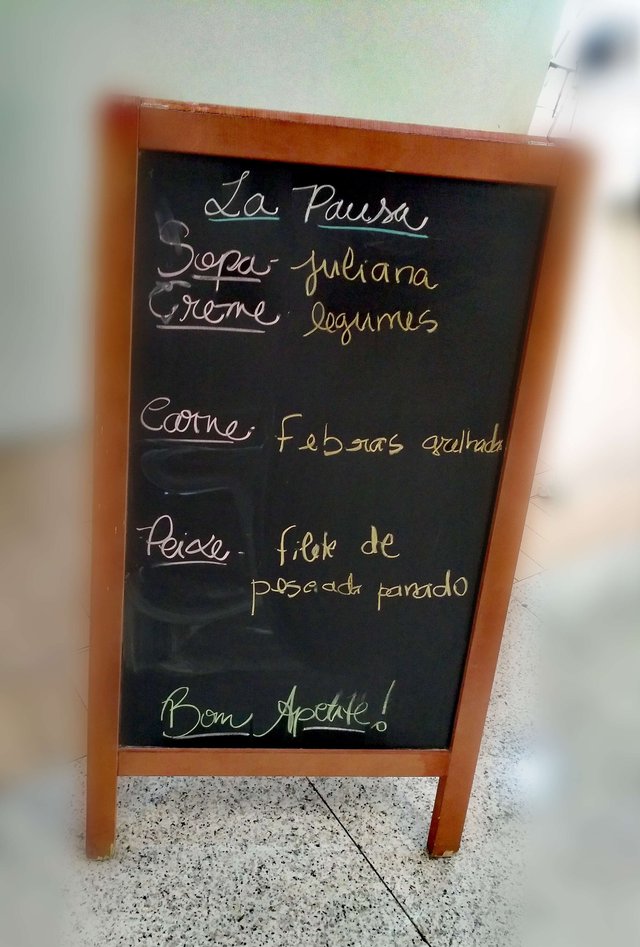 La Pausa
Sopa- Juliana
Creme legumes
Carne: Febras grelhada
Peixe- filete de
pescada panado
Bom Apetite!